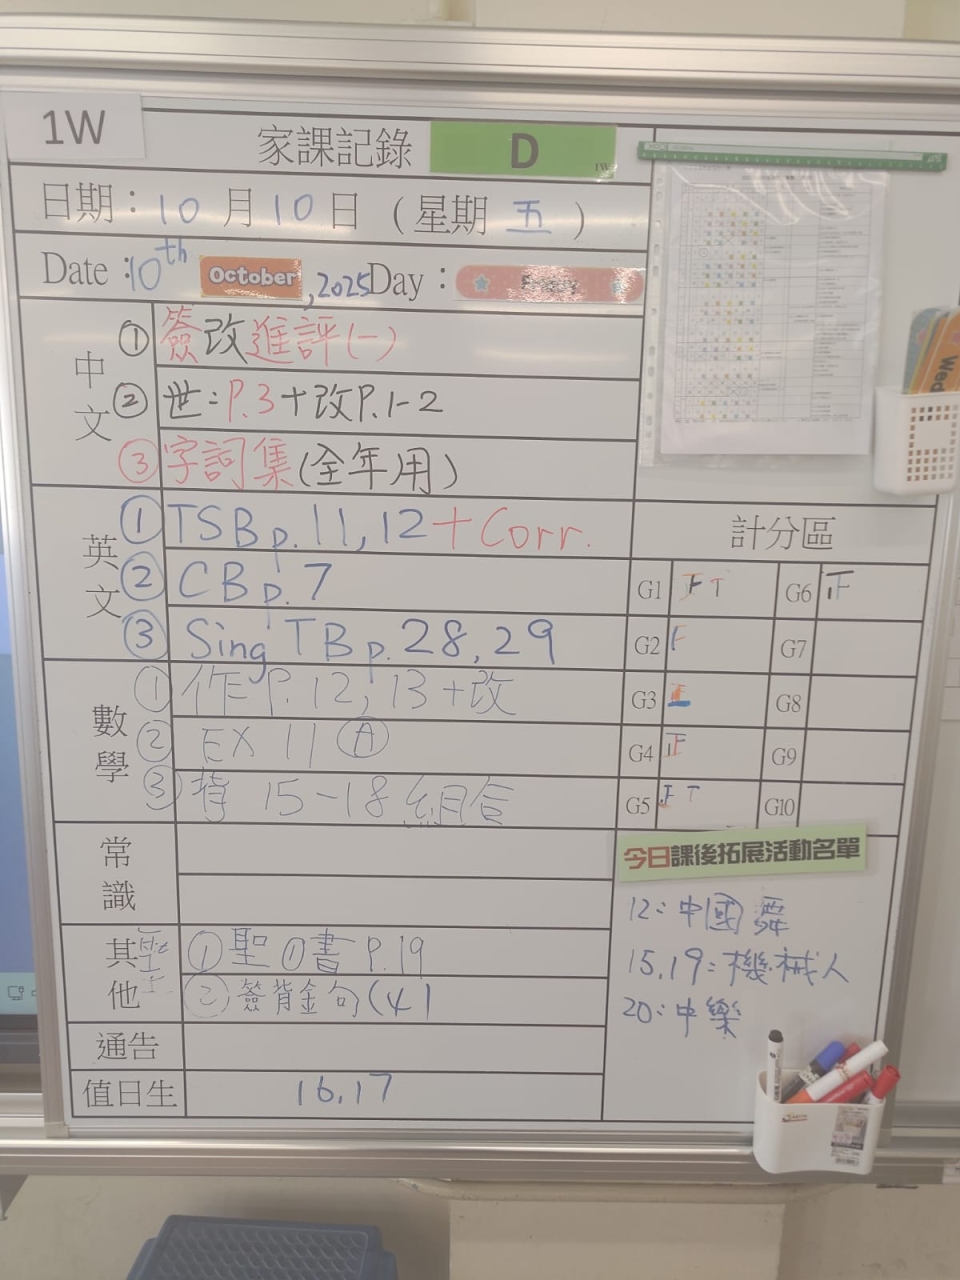 1W
家課記錄 D
1W
日期：10月10日（星期五）
Date：10th October, 2025 Day：Friday
中文
① 簽改進評(一)
② 世：P.3＋改P.1-2
③ 字詞集(全年用)
英文
① TSB p.11,12＋Corr.
② CB p.7
③ Sing TB p.28,29
數學
① 作P.12,13＋改
② EX 11 Ⓐ
③ 背 15-18 組合
常識
其他
① 聖①書 P.19
② 簽背金句(4)
通告
值日生 16.17
計分區
G1 正 T G6 正
G2 F G7
G3 正 G8
G4 正 G9
G5 正 T G10
今日課後拓展活動名單
12：中國舞
15,19：機械人
20：中樂
Wed